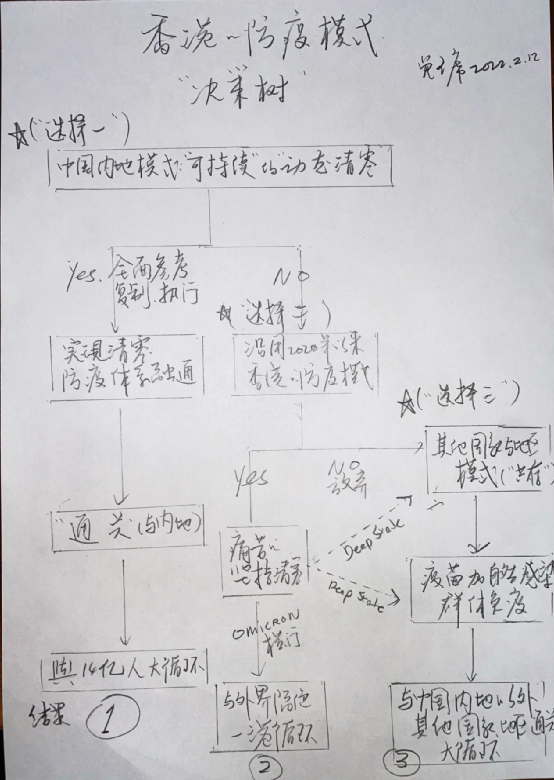 香港的防疫模式
"决策树"
2022.2.12
☆("选择一")
中国内地模式"可持续"的"动态清零"
Yes. 全面参考
复制.执行
NO
☆(选择二)
实现清零
防疫体系融通
沿用2020年以来
香港的防疫模式
☆("选择三")
Yes
NO
放弃
其他国家与地区
模式("共存")
"通关"(与内地)
痛苦的
坚持清零
Deep State
Deep State
疫苗加自然感染
群体免疫
OMICRON
横行
与14亿人大循环
与外界隔绝
一港循环
与中国内地以外
其他国家地区通关
大循环
结果 ① ② ③